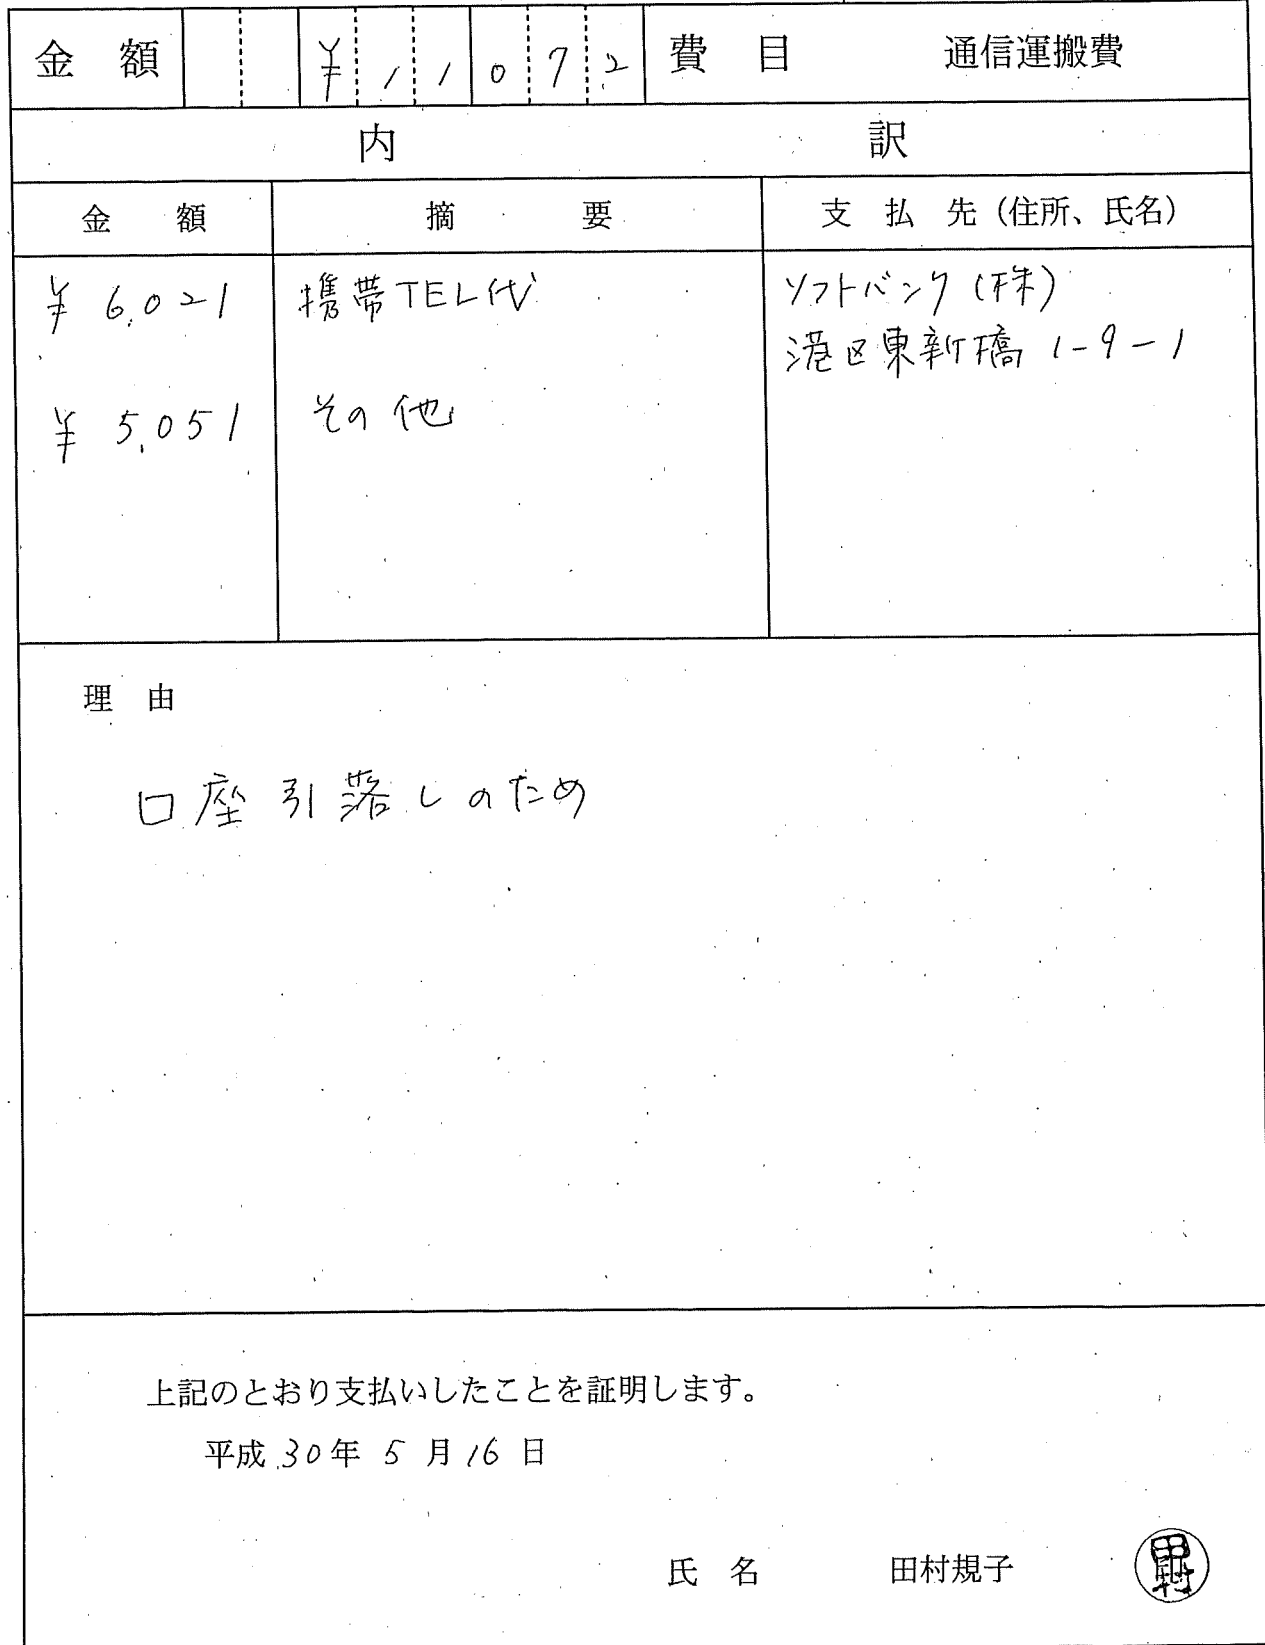 金 額 ¥11072 費 目 通信運搬費
内 訳
金 額 摘 要 支 払 先 (住所、氏名)
¥ 6,021 携帯TEL代 ソフトバンク(株)
港区東新橋 1-9-1
¥ 5,051 その他
理 由
口座引落しのため
上記のとおり支払いしたことを証明します。
平成 30年 5 月 16 日
氏 名 田村規子 田村